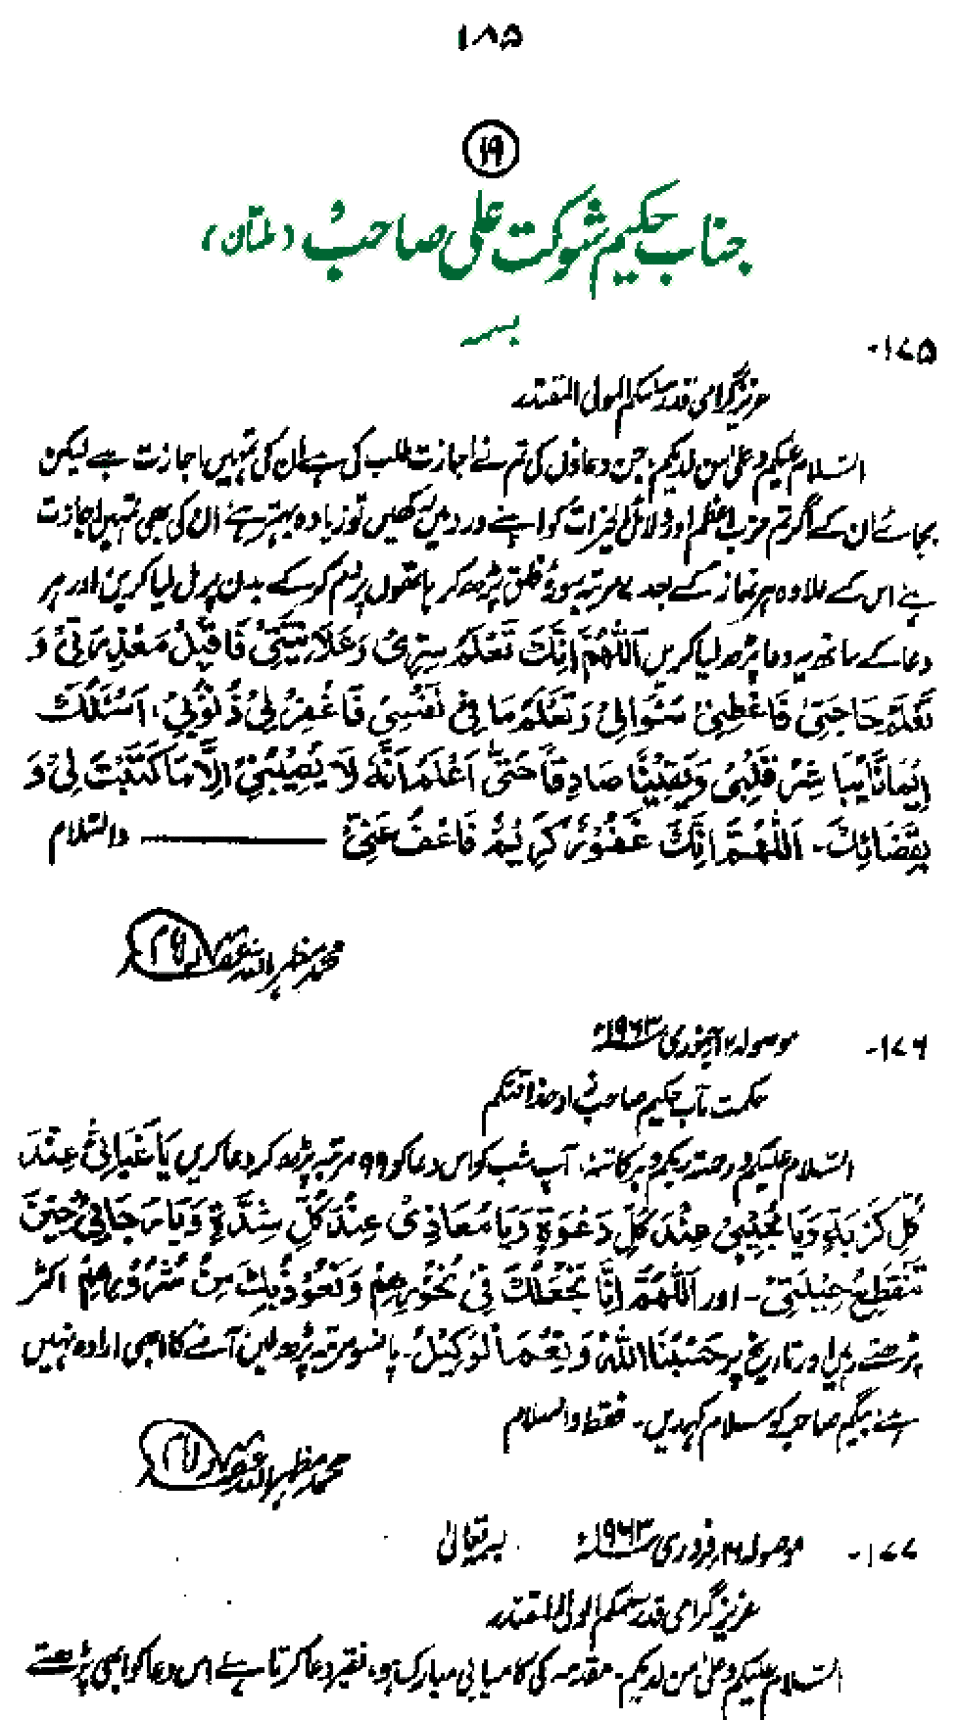 ۱۸۵
۱۹
جناب حکیم شوکت علی صاحب (ملتان)
بسمہ
۱۷۵-
عزیز گرامی قدر سلمکم المولی المقتدر
السلام علیکم وعلیٰ من لدیکم، جن دعاؤں کی تم نے اجازت طلب کی ہے ان کی تمہیں اجازت ہے لیکن
بجائے ان کے اگر تم حزب اعظم اور دلائل الخیرات کو اپنے ورد میں رکھیں تو زیادہ بہتر ہے ان کی بھی تمہیں اجازت
ہے اس کے علاوہ ہر نماز کے بعد ۷ مرتبہ سورۂ فلق پڑھ کر ہاتھوں پر دم کر کے بدن پر مل لیا کریں اور ہر
دعا کے ساتھ یہ دعا پڑھ لیا کریں اَللّٰهُمَّ اِنَّكَ تَعْلَمُ سِرِّیْ وَعَلَانِیَتِیْ فَاقْبِلْ مَعْذِرَتِیْ وَ
تَعْلَمُ حَاجَتِیْ فَاَعْطِنِیْ سُؤَالِیْ وَتَعْلَمُ مَا فِیْ نَفْسِیْ فَاغْفِرْ لِیْ ذُنُوْبِیْ، اَسْئَلُكَ
اِیْمَانًا یُبَاشِرُ قَلْبِیْ وَیَقِیْنًا صَادِقًا حَتّٰی اَعْلَمَ اَنَّهٗ لَا یُصِیْبُنِیْ اِلَّا مَا كَتَبْتَ لِیْ وَ
بِقَضَائِكَ۔ اَللّٰهُمَّ اِنَّكَ غَفُوْرٌ كَرِیْمٌ فَاعْفُ عَنِّیْ ——— والسلام
محمد مظہر اللہ
۱۷۶- موصولہ جنوری ۱۹۶۳ء
حکمت مآب حکیم صاحب
السلام علیکم ورحمۃ ربکم وبرکاتہٗ، آپ شب کو اس دعا کو ۹۹ مرتبہ پڑھ کر دعا کریں یَا غَیَاثِیْ عِنْدَ
كُلِّ كُرْبَةٍ وَیَا مُجِیْبِیْ عِنْدَ كُلِّ دَعْوَةٍ وَیَا مَعَاذِیْ عِنْدَ كُلِّ شِدَّةٍ وَیَا رَجَائِیْ حِیْنَ
تَنْقَطِعُ حِیْلَتِیْ۔ اور اَللّٰهُمَّ اِنَّا نَجْعَلُكَ فِیْ نُحُوْرِهِمْ وَنَعُوْذُ بِكَ مِنْ شُرُوْرِهِمْ اکثر
پڑھتے رہیں اور تاریخ پر حَسْبُنَا اللهُ وَنِعْمَ الْوَكِیْلُ۔ پانسو مرتبہ پڑھ لیں آنے کا ابھی ارادہ نہیں
ہے بیگم صاحبہ کو سلام کہدیں۔ فقط والسلام
محمد مظہر اللہ
۱۷۷- موصولہ فروری ۱۹۶۳ء بسمہ تعالیٰ
عزیز گرامی قدر سلمکم المولی المقتدر
السلام علیکم وعلیٰ من لدیکم۔ مقدمہ کی کامیابی مبارک ہو، فقیر دعا کرتا ہے اس دعا کو ابھی پڑھتے